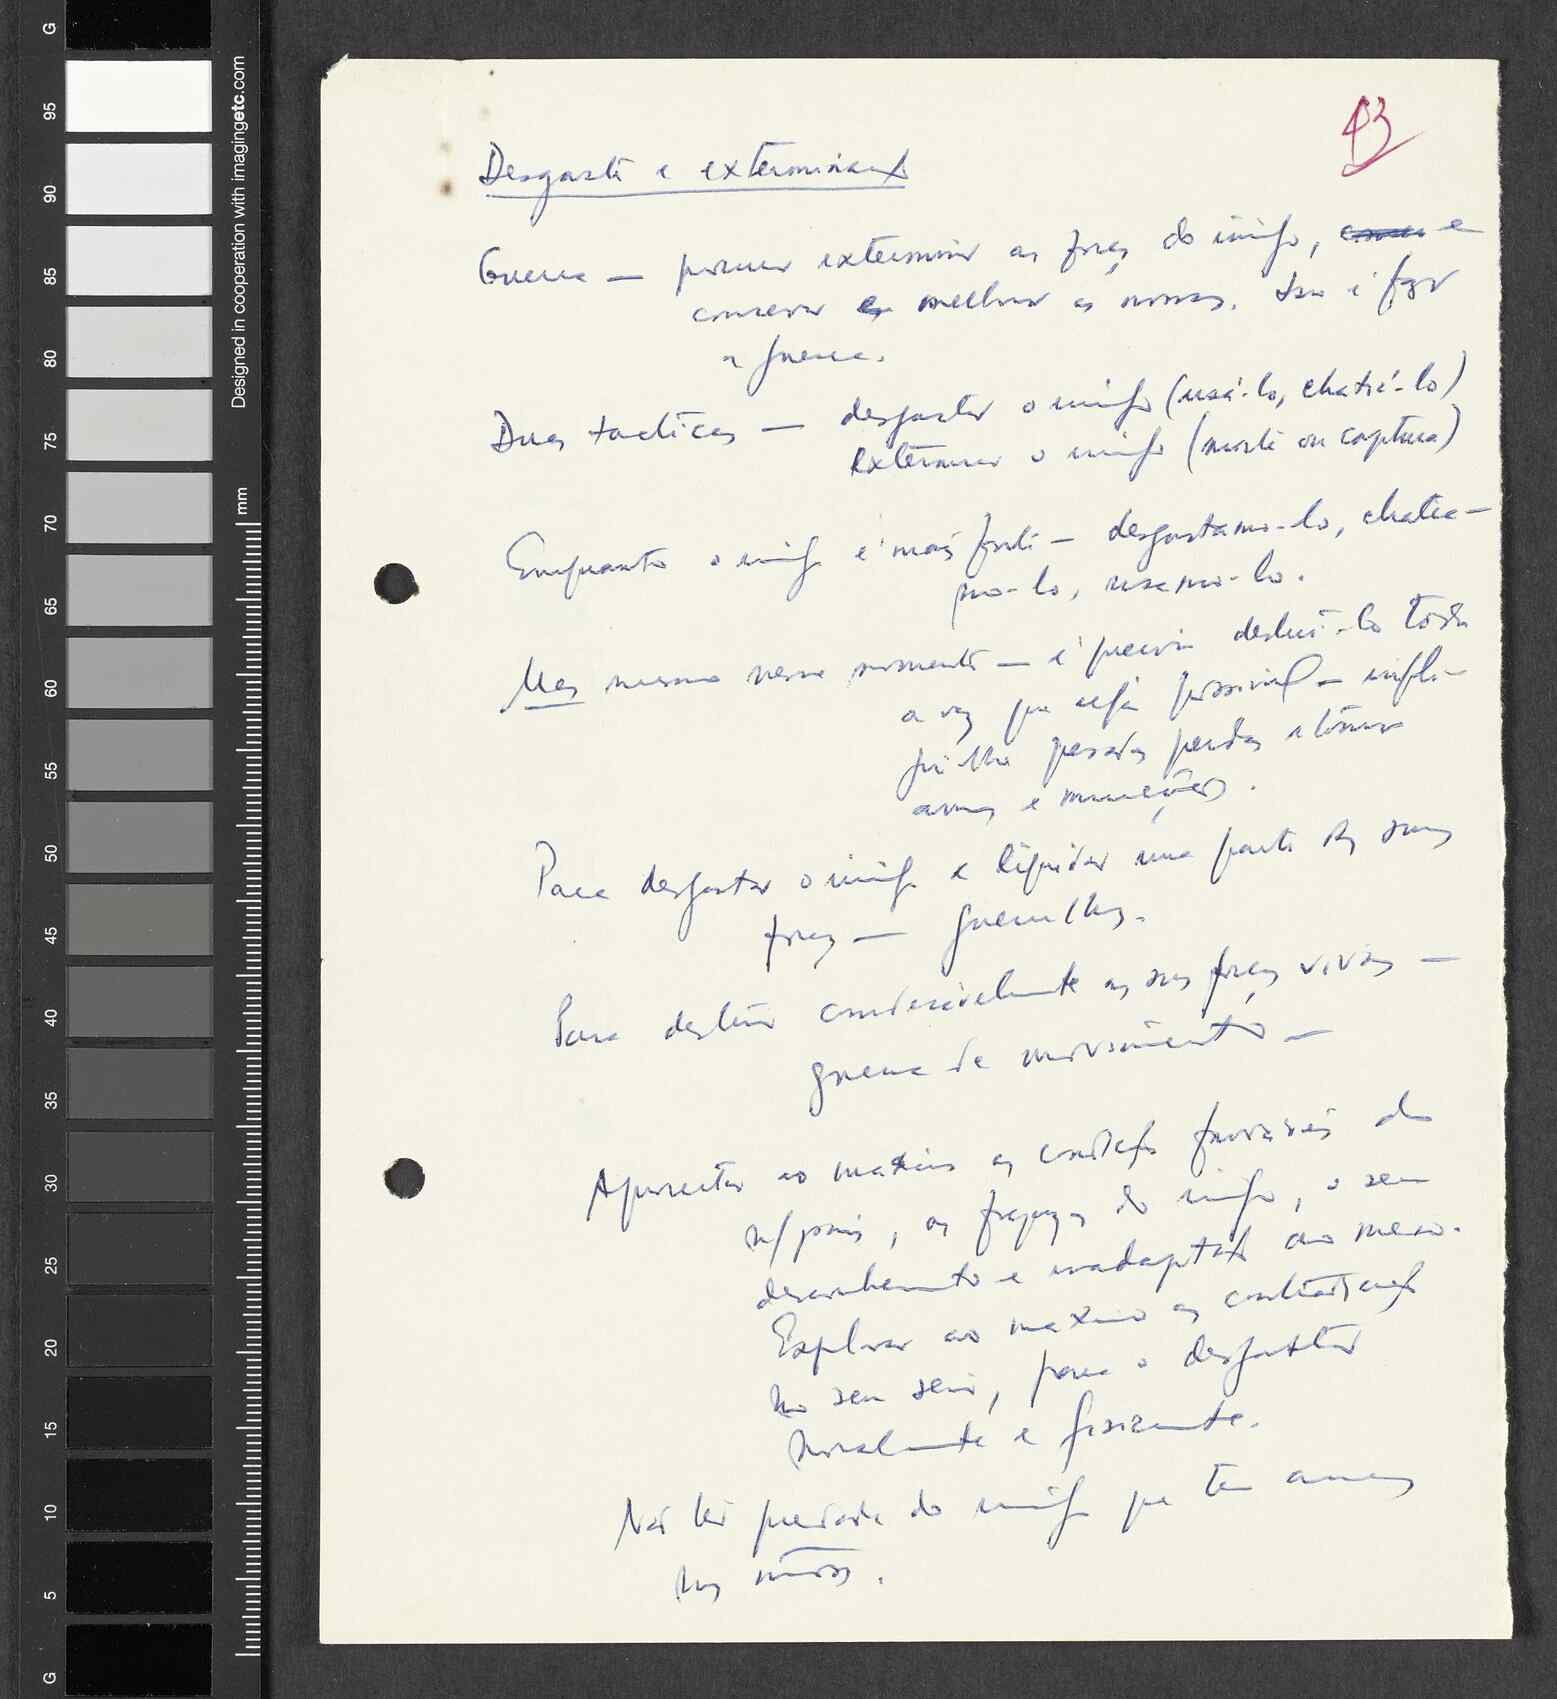 43
Desgaste e extermínio
Guerra — procurar exterminar as forças do inimigo, e
conservar e melhorar as nossas. Isso é fazer
a guerra.
Duas tacticas — desgastar o inimigo (usá-lo, chateá-lo)
exterminar o inimigo (morte ou captura)
Enquanto o inimigo é mais forte — desgastamo-lo, chatea-
mo-lo, usamo-lo.
Mas mesmo nesse momento — é preciso destruí-lo toda
a vez que seja possível — infli-
gir-lhe pesadas perdas e tomar
armas e munições.
Para desgastar o inimigo e liquidar uma parte das suas
forças — guerrilhas.
Para destruir consideravelmente as suas forças vivas —
guerra de movimento —
Aproveitar ao maximo as condições favoráveis do
n/ país, as fraquezas do inimigo, o seu
desconhecimento e inadaptação ao meio.
Explorar ao maximo as contradições
no seu seio, para o desgastar
moralmente e fisicamente.
Não ter piedade do inimigo que tem armas
nas mãos.
Designed in cooperation with imagingetc.com
mm
G
95
90
85
80
75
70
65
60
55
50
45
40
35
30
25
20
15
10
5
G